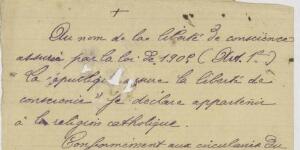 Au nom de la liberté de conscience
assurée par la loi de 1905 (Art. 1er)
"La République assure la liberté de
conscience" je déclare appartenir
à la religion catholique.
Conformément aux circulaires du